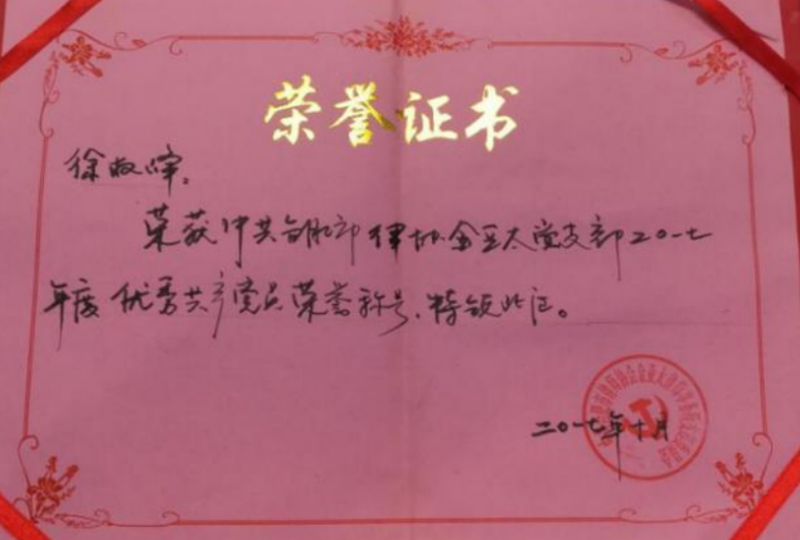 荣誉证书
徐
荣获中共合肥市律协金亚太党支部二〇一七
年度优秀共产党员荣誉称号，特颁此证。
二〇一七年十月